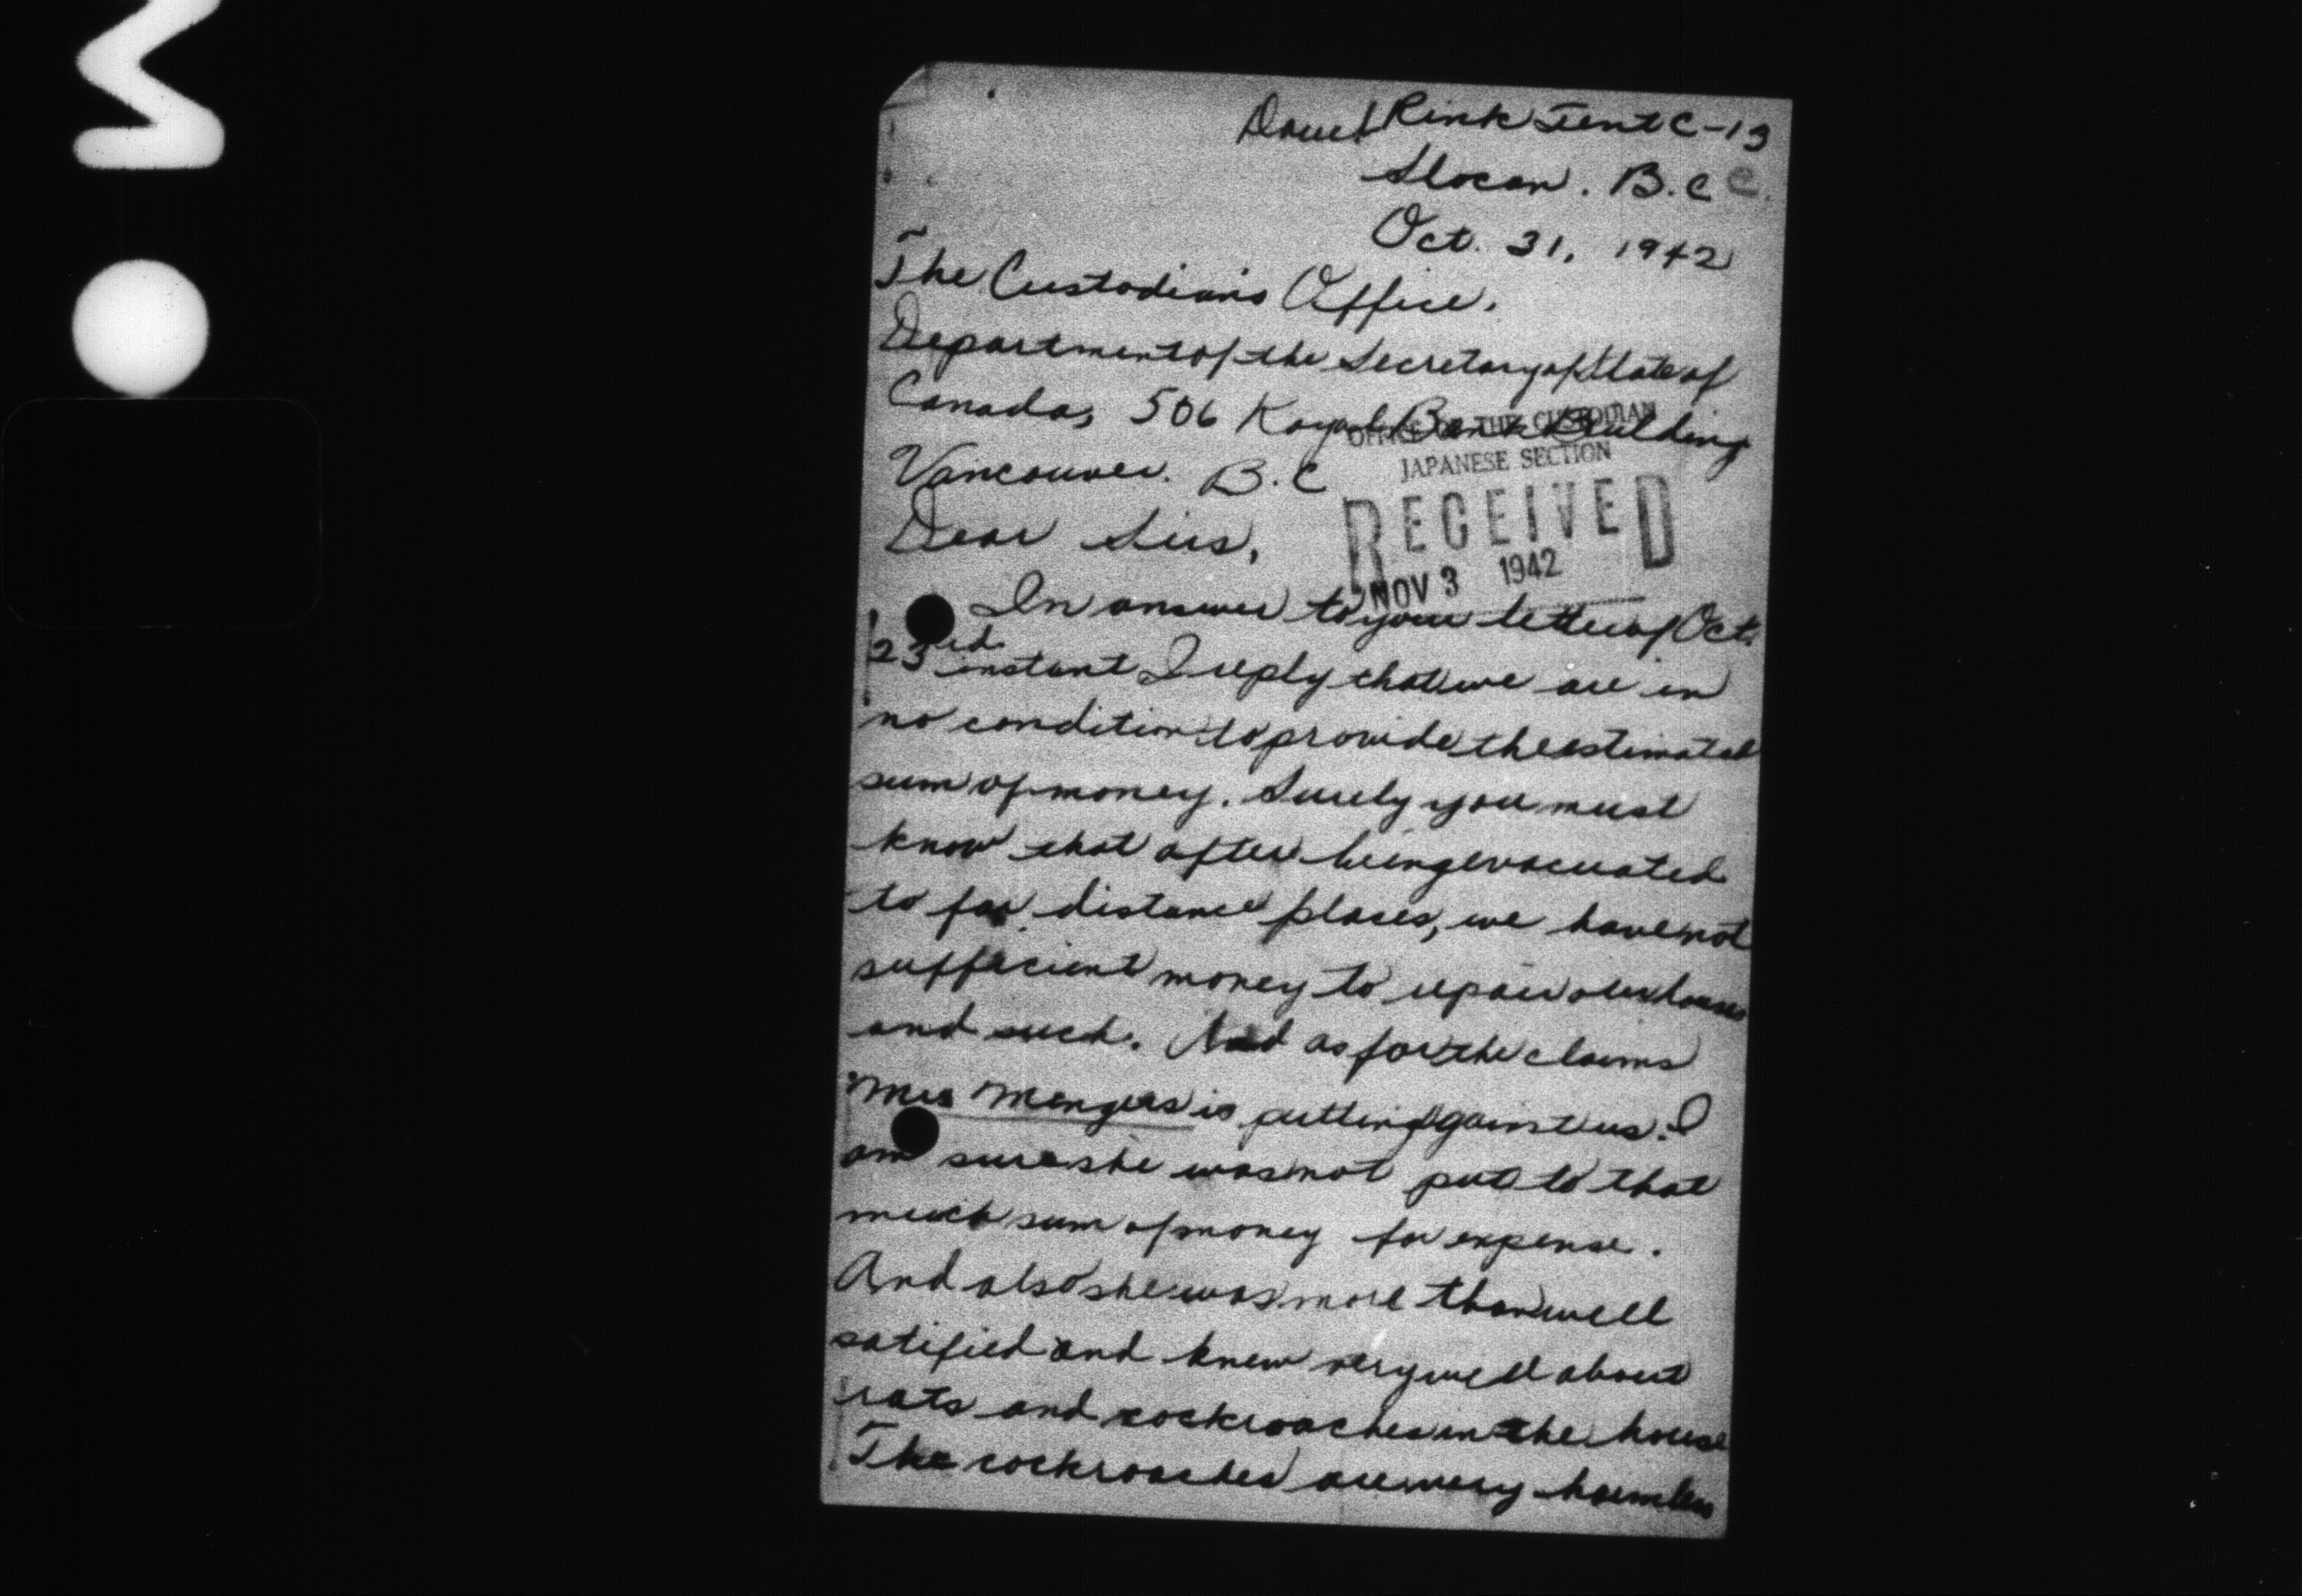 Rink Tent C-13
Slocan. B.C C.
Oct. 31, 1942
The Custodian's Office,
Department of the Secretary of State of
Canada, 506 Royal Bank Building
OFFICE OF THE CUSTODIAN
JAPANESE SECTION
Vancouver. B.C
RECEIVED
Dear Sirs,
NOV 3 1942
In answer to your letter of Oct.
23rd instant I reply that we are in
no condition to provide the estimated
sum of money. Surely you must
know that after being evacuated
to far distance places, we have not
sufficient money to repair our houses
and such. And as for the claims
Mrs Mengies is putting against us. I
am sure she was not put to that
much sum of money for expense.
And also she was more than well
satified and knew very well about
rats and cockroaches in the house
The cockroaches are very harmless